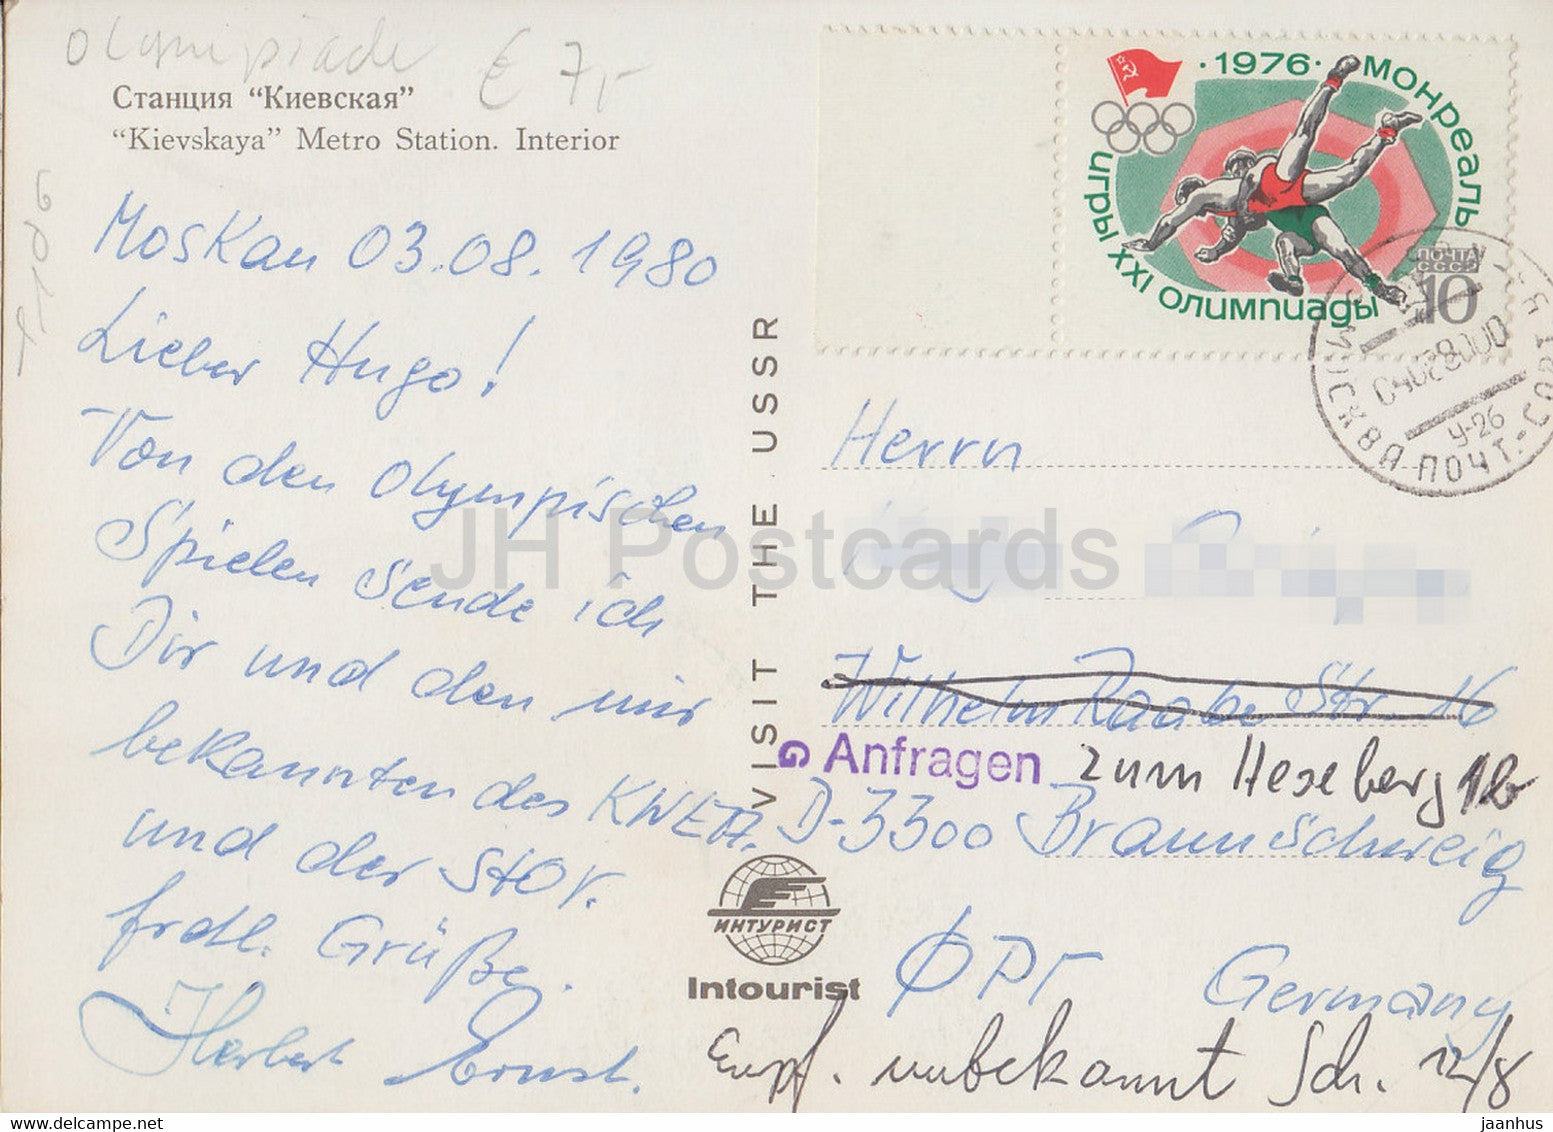 Olympiade € 7,-
Станция "Киевская"
"Kievskaya" Metro Station. Interior
Moskau 03.08.1980
Lieber Hugo!
Von den Olympischen
Spielen sende ich
Dir und den mir
bekannten des KWETH.
und der StOV.
frdl. Grüße.
Herbert Ernst.
VISIT THE USSR
ИНТУРИСТ
Intourist
·1976· МОНРЕАЛЬ
ИГРЫ XXI ОЛИМПИАДЫ
ПОЧТА
СССР
10
МОСКВА ПОЧТ.
У-26
Herrn
Wilhelm Raabe Str. 16
Anfragen zum Heseberg 1b
D-3300 Braunschweig
ФРГ Germany
Empf. unbekannt Sch. 12/8
JH Postcards
delcampe.net
jaanhus